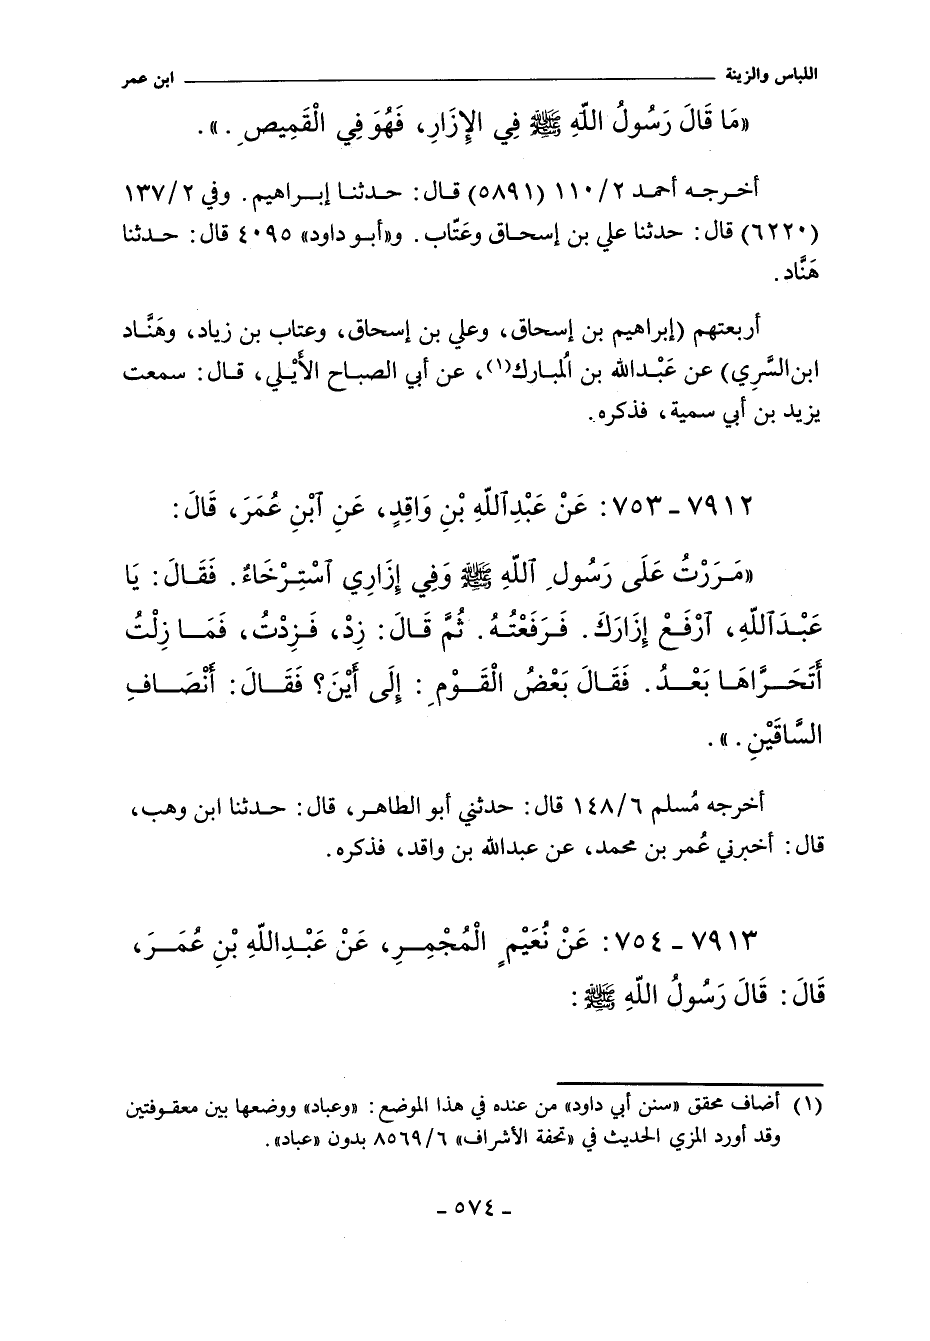 اللباس والزينة ـــــــــــــــــــــ ابن عمر
«مَا قَالَ رَسُولُ اللّهِ ﷺ فِي الإِزَارِ، فَهُوَ فِي الْقَمِيصِ .» .
أخرجه أحمد ٢/ ١١٠ (٥٨٩١) قال: حدثنا إبراهيم. وفي ٢/ ١٣٧
(٦٢٢٠) قال: حدثنا علي بن إسحاق وعَتَّاب. و«أبو داود» ٤٠٩٥ قال: حدثنا
هَنَّاد.
أربعتهم (إبراهيم بن إسحاق، وعلي بن إسحاق، وعتاب بن زياد، وهَنَّاد
ابن السَّرِي) عن عَبْدالله بن الُمبارك(١)، عن أبي الصباح الأَيْلي، قال: سمعت
يزيد بن أبي سمية، فذكره.
٧٩١٢ ـ ٧٥٣: عَنْ عَبْدِاللّهِ بْنِ وَاقِدٍ، عَنِ ٱبْنِ عُمَرَ، قَالَ:
«مَرَرْتُ عَلَى رَسُولِ ٱللّهِ ﷺ وَفِي إِزَارِي ٱسْتِرْخَاءٌ. فَقَالَ: يَا
عَبْدَٱللّهِ، ٱرْفَعْ إِزَارَكَ. فَرَفَعْتُهُ. ثُمَّ قَالَ: زِدْ، فَزِدْتُ، فَمَا زِلْتُ
أَتَحَرَّاهَا بَعْدُ. فَقَالَ بَعْضُ الْقَوْمِ: إِلَى أَيْنَ؟ فَقَالَ: أَنْصَافِ
السَّاقَيْنِ .» .
أخرجه مُسلم ٦/ ١٤٨ قال: حدثني أبو الطاهر، قال: حدثنا ابن وهب،
قال: أخبرني عُمر بن محمد، عن عبدالله بن واقد، فذكره.
٧٩١٣ ـ ٧٥٤: عَنْ نُعَيْمٍ الْمُجْمِرِ، عَنْ عَبْدِاللّهِ بْنِ عُمَرَ،
قَالَ: قَالَ رَسُولُ اللّهِ ﷺ:
(١) أضاف محقق «سنن أبي داود» من عنده في هذا الموضع: «وعباد» ووضعها بين معقوفتين
وقد أورد المزي الحديث في «تحفة الأشراف» ٦/ ٨٥٦٩ بدون «عباد».
ـ ٥٧٤ ـ